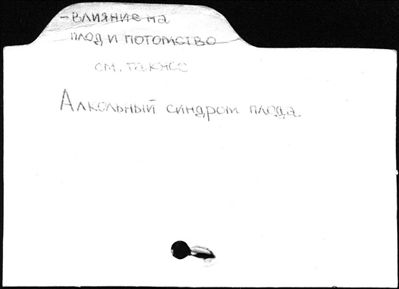 - влияние на
плод и потомство
см. также
Алкольный синдром плода.